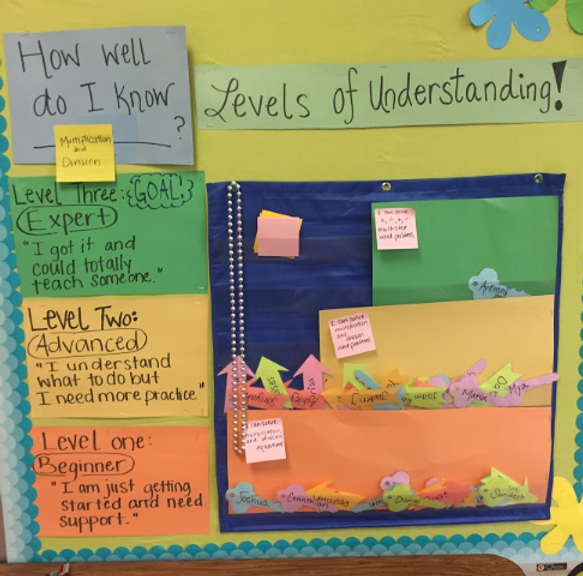 How well
do I know
?
Multiplication
and
Division
Levels of Understanding!
Level Three: {GOAL!}
Expert
"I got it and
could totally
teach someone."
Level Two:
Advanced
"I understand
what to do but
I need more practice."
Level one:
Beginner
"I am just getting
started and need
support."
I can solve
word problems
Anthony
I can solve
multiplication
and division
word problems
Maria
Mya
I can solve
multiplication
and division
equations
Joshua
Daniel